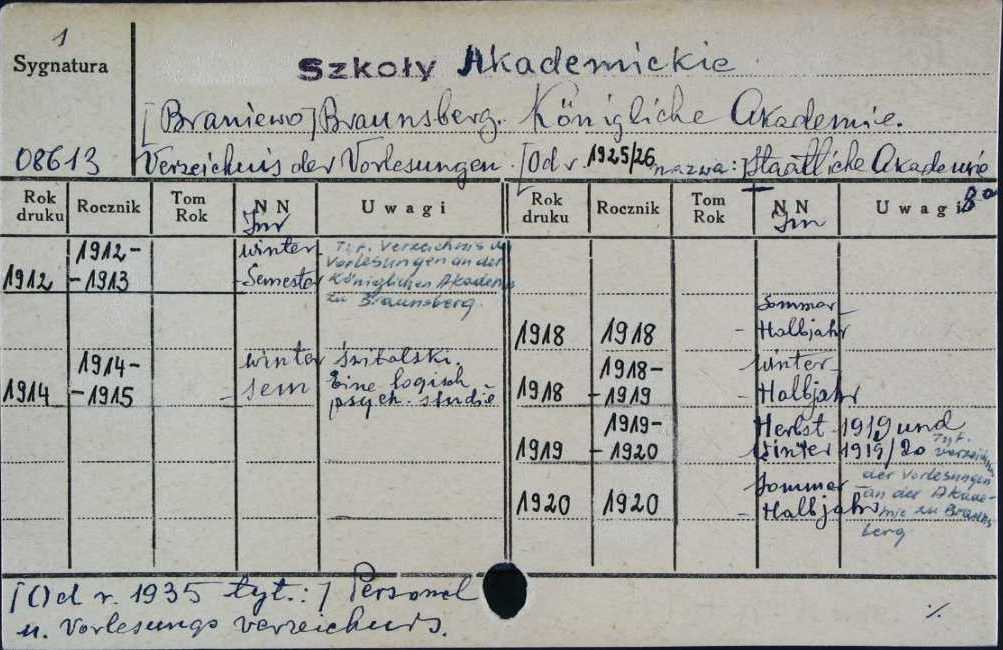 1
Sygnatura
Szkoły Akademickie
[Braniewo] Braunsberg. Königliche Akademie.
08613 Verzeichnis der Vorlesungen. [Od r. 1925/26 nazwa: Staatliche Akademie
8°
Rok druku Rocznik Tom Rok NN Uwagi Rok druku Rocznik Tom Rok NN Uwagi
1912 1912-1913 Winter-Semester Tyt. Verzeichnis d. Vorlesungen an der Königlichen Akademie zu Braunsberg.
1914 1914-1915 Winter sem Świtalski. Eine logisch-psych. studie
1918 1918 Sommer-Halbjahr
1918 1918-1919 Winter-Halbjahr
1919 1919-1920 Herbst 1919 und Winter 1919/20 Tyt. Verzeichnis der Vorlesungen an der Akademie zu Braunsberg
1920 1920 Sommer-Halbjahr
[Od r. 1935 tyt.:] Personal
u. Vorlesungs verzeichnis.
./.